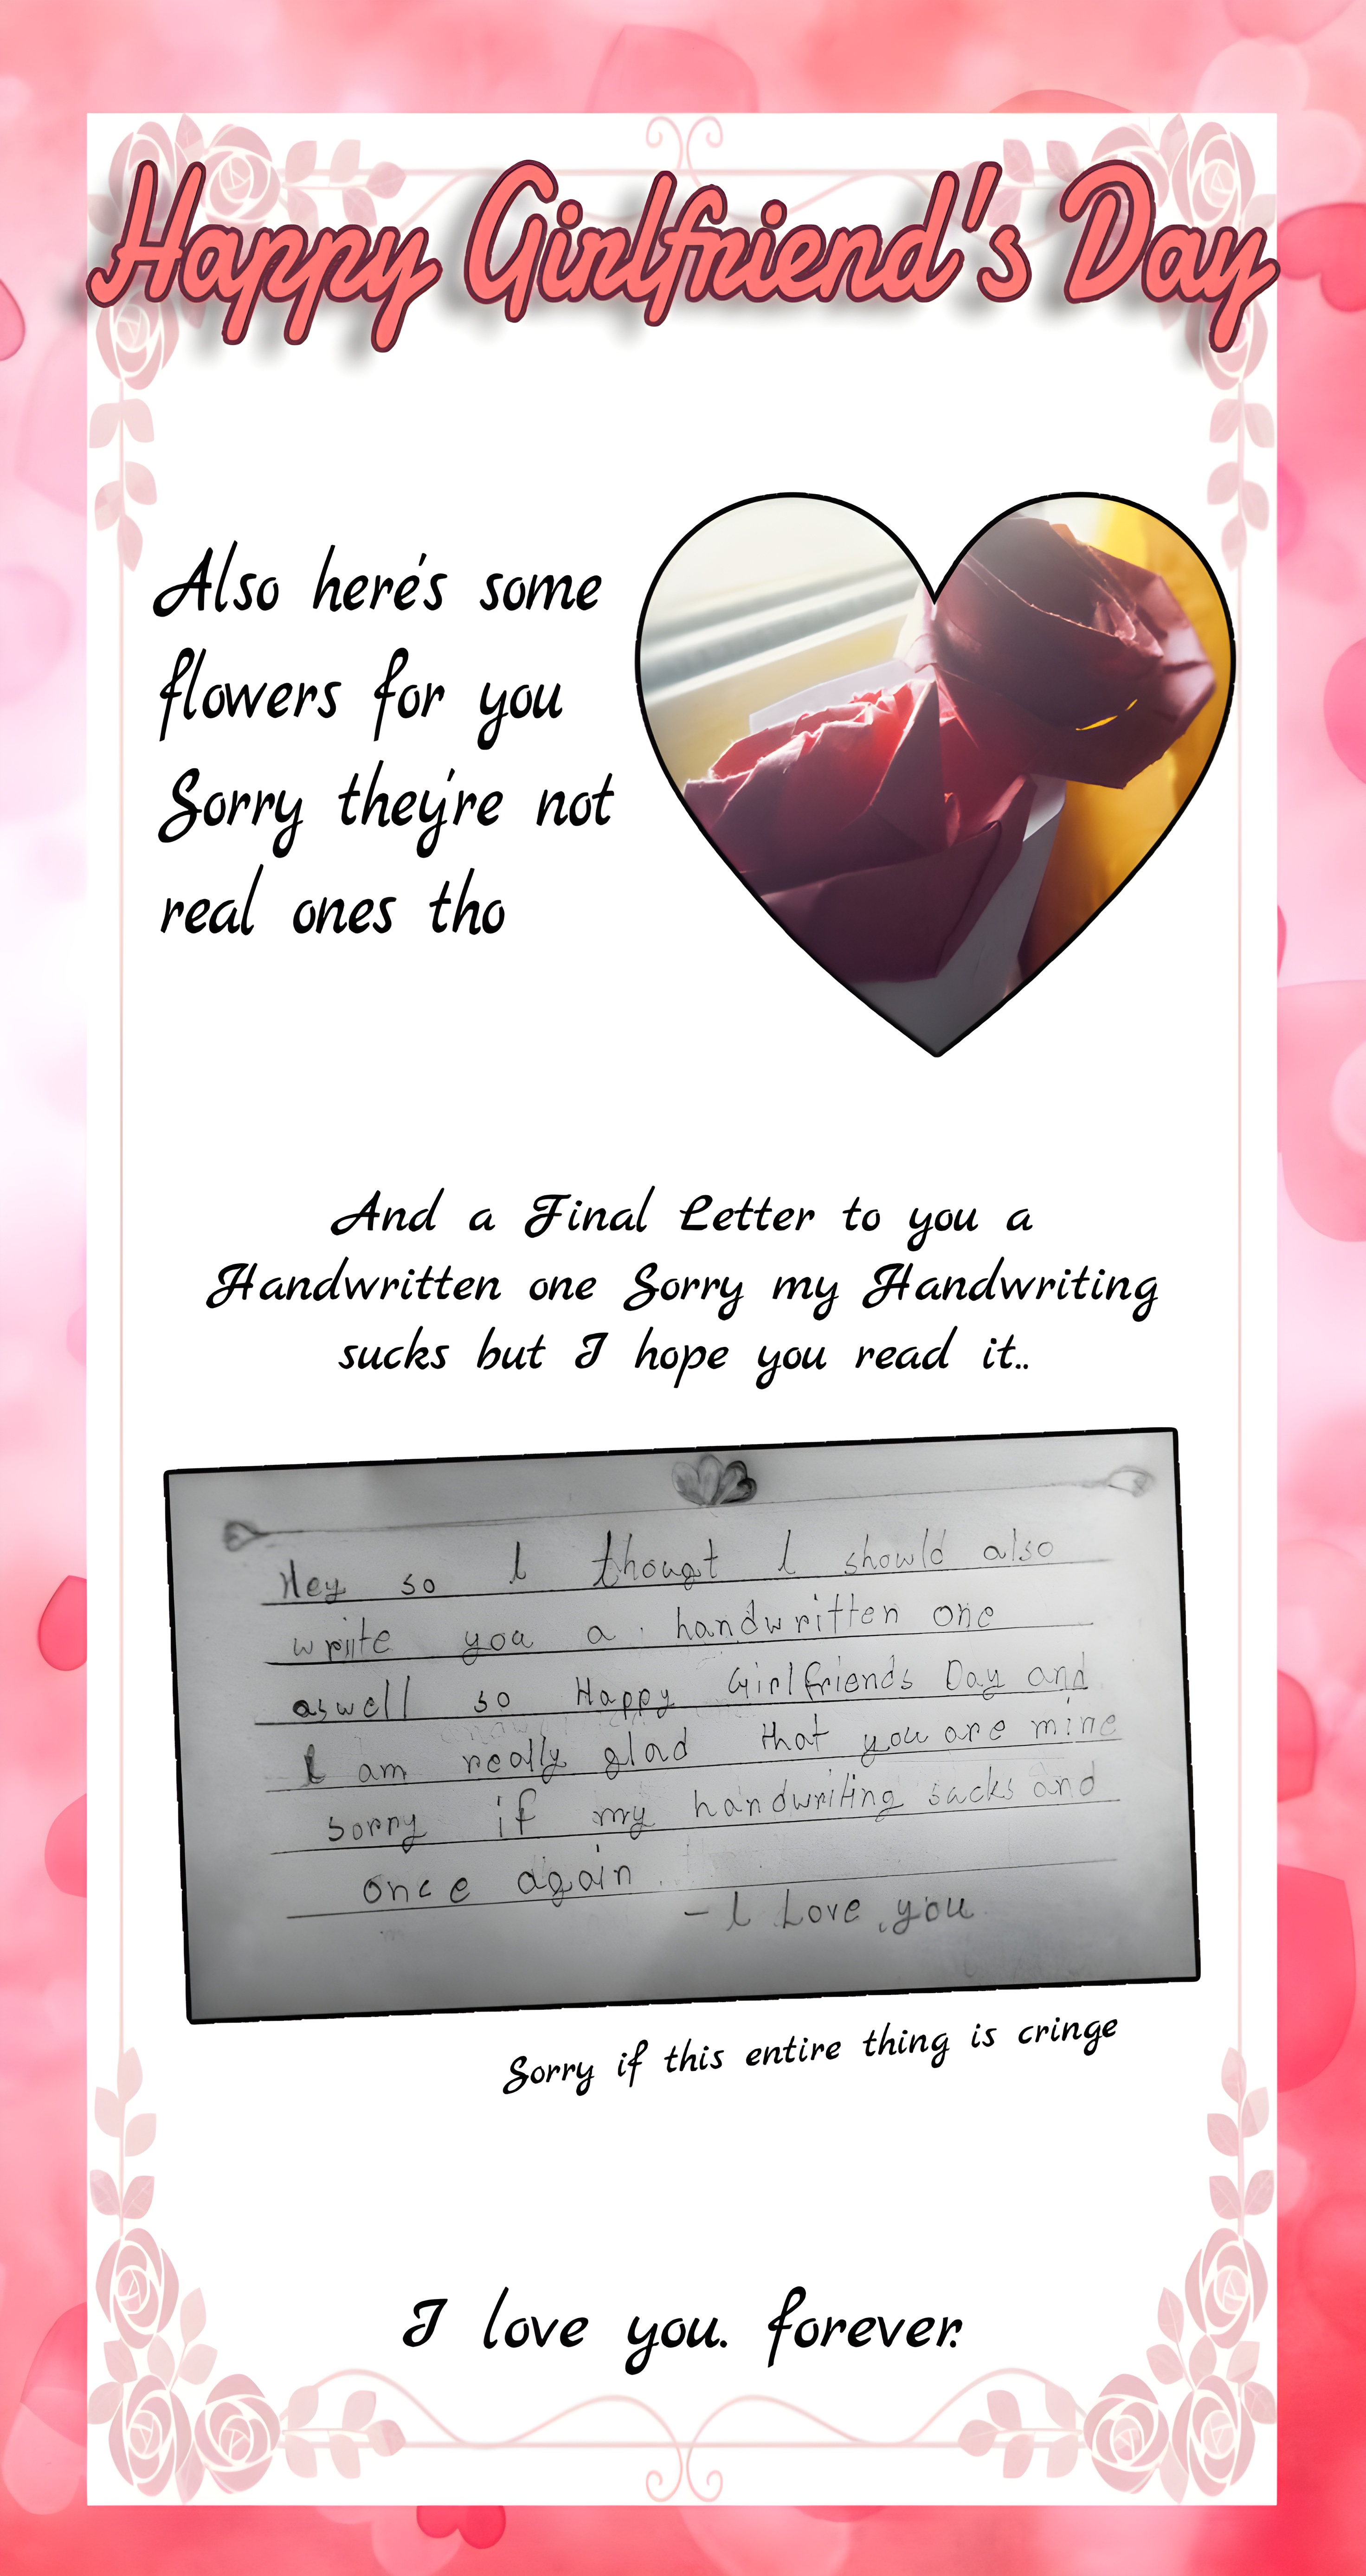 Happy Girlfriend's Day
Also here's some
flowers for you
Sorry they're not
real ones tho
And a Final Letter to you a
Handwritten one Sorry my Handwriting
sucks but I hope you read it..
Hey so I thougt I should also
write you a handwritten one
aswell so Happy Girlfriends Day and
I am really glad that you are mine
sorry if my handwriting sucks and
once again
- I Love you
Sorry if this entire thing is cringe
I love you. forever.